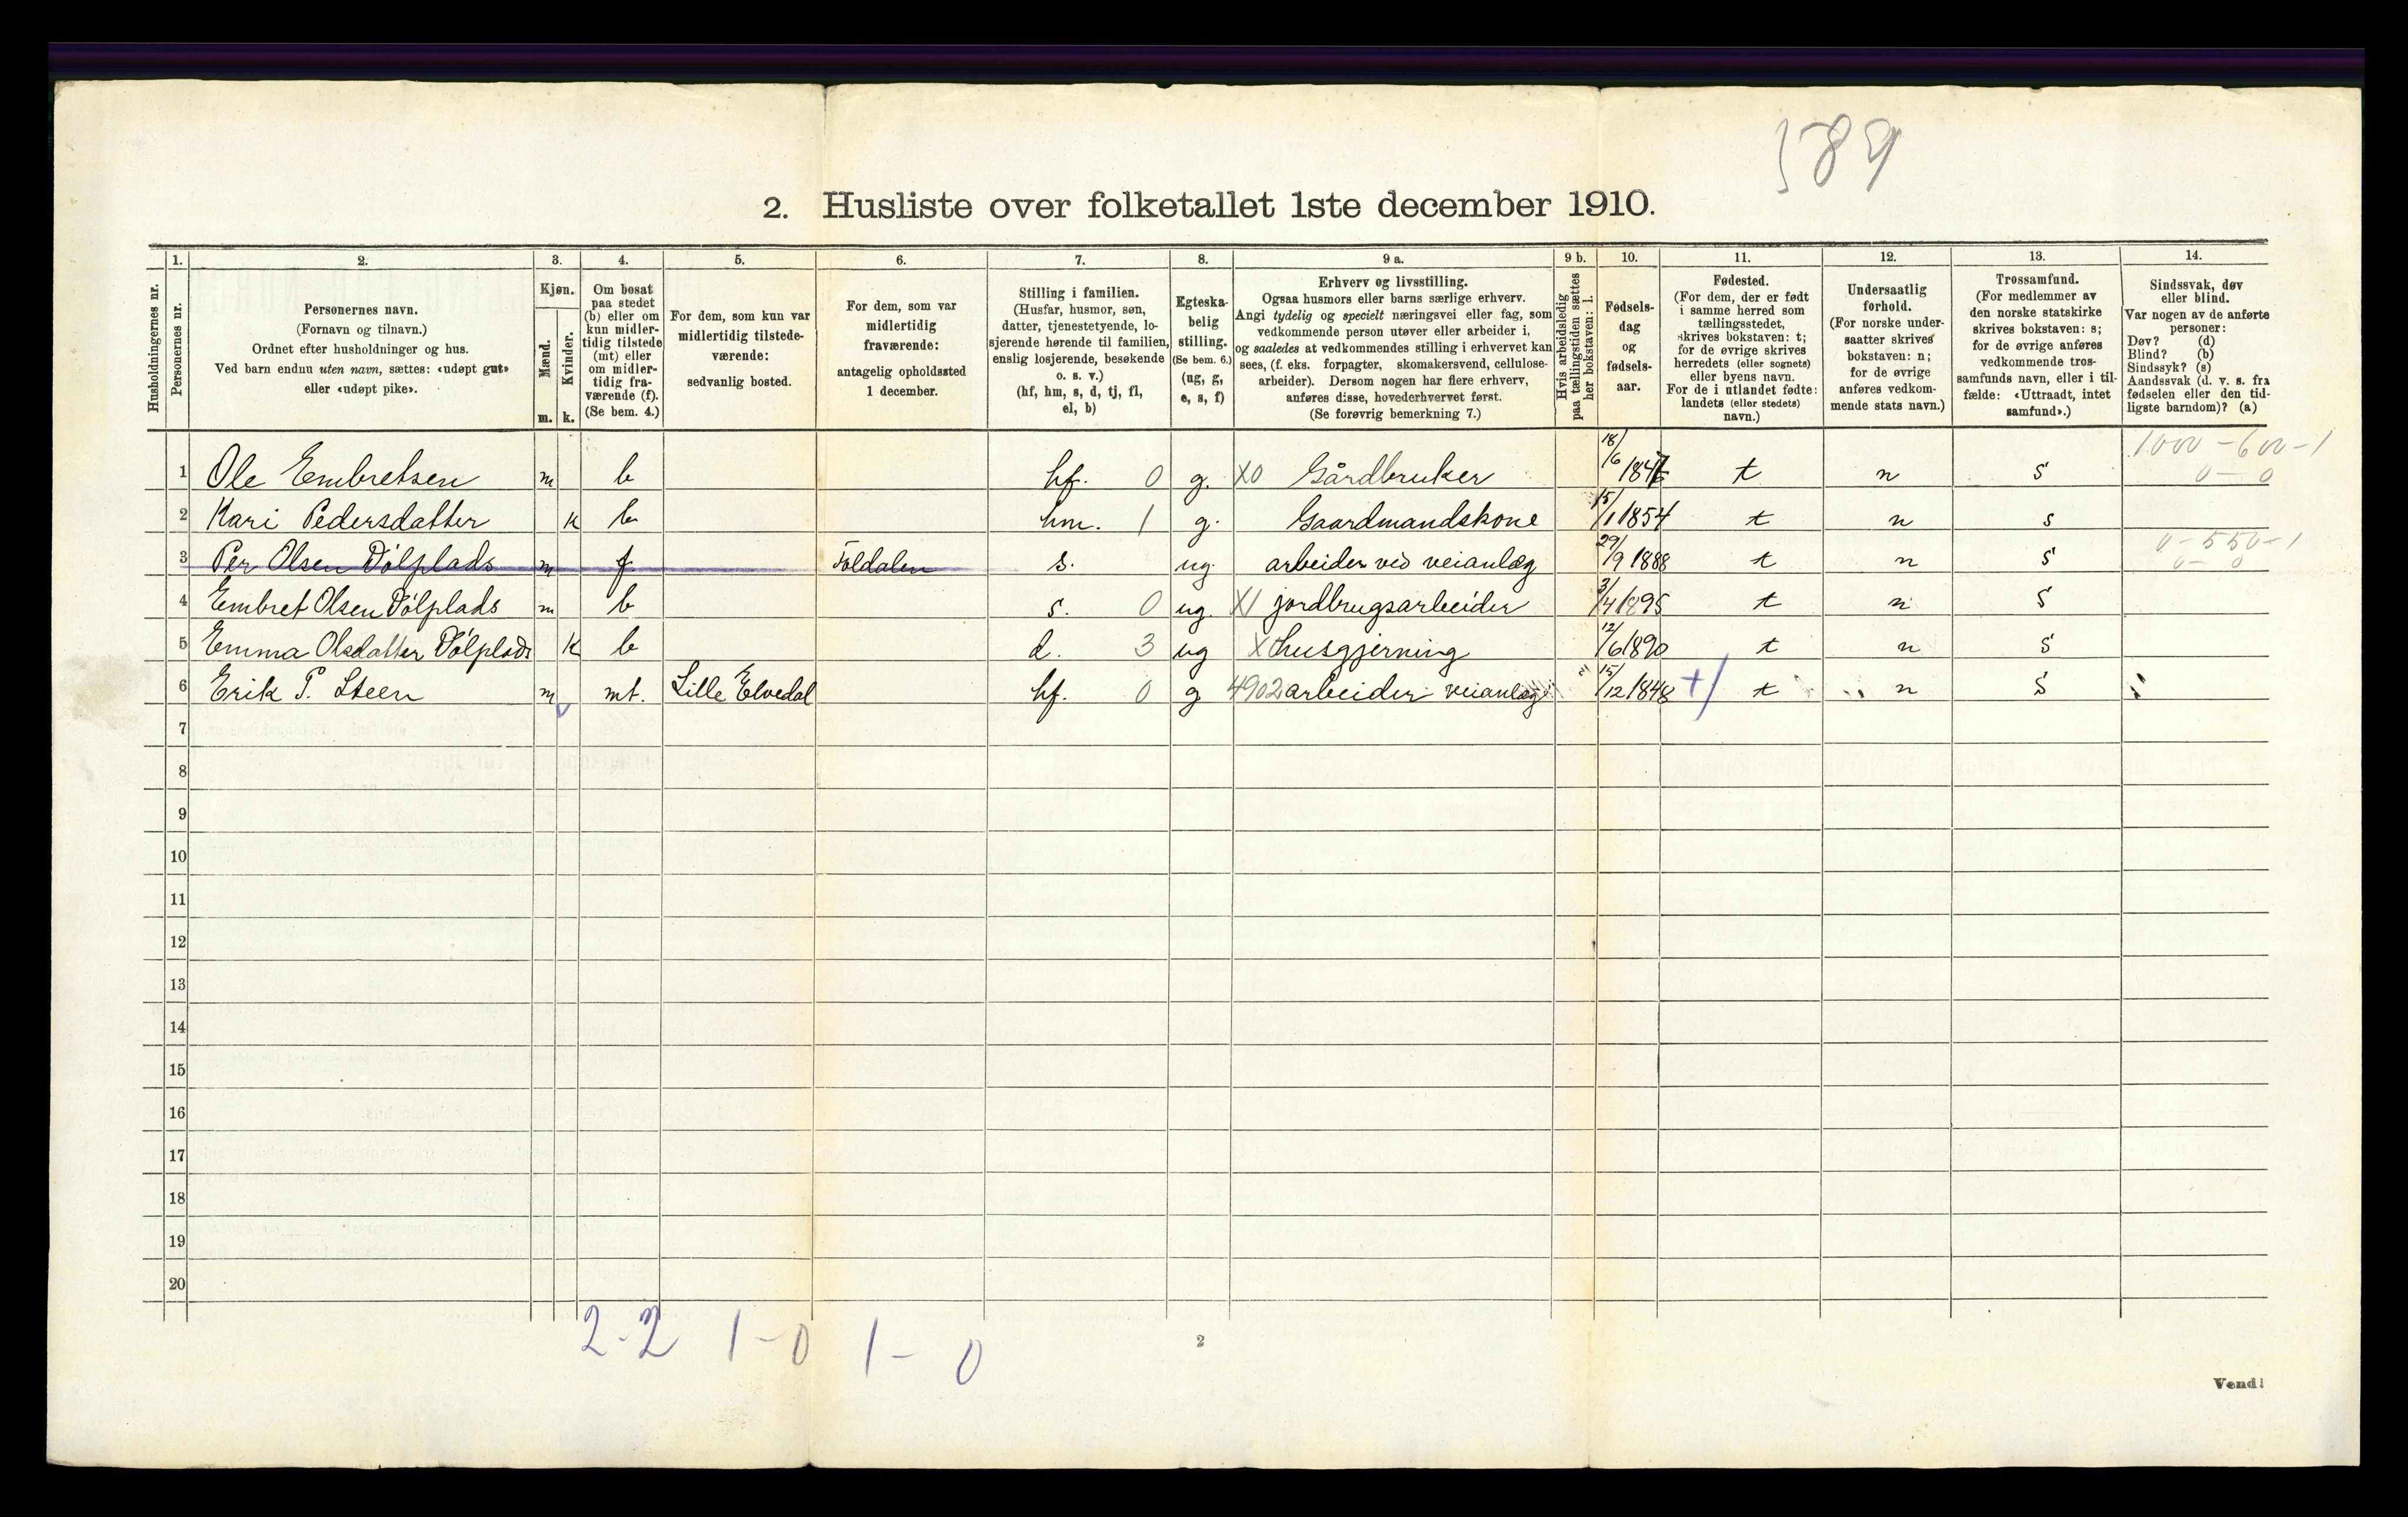 589
2. Husliste over folketallet 1ste december 1910.
Husholdningernes nr.
1. Personernes nr.
2. Personernes navn. (Fornavn og tilnavn.) Ordnet efter husholdninger og hus. Ved barn endnu uten navn, sættes: «udøpt gut» eller «udøpt pike».
3. Kjøn. Mænd. m. Kvinder. k.
4. Om bosat paa stedet (b) eller om kun midlertidig tilstede (mt) eller om midlertidig fraværende (f). (Se bem. 4.)
5. For dem, som kun var midlertidig tilstedeværende: sedvanlig bosted.
6. For dem, som var midlertidig fraværende: antagelig opholdssted 1 december.
7. Stilling i familien. (Husfar, husmor, søn, datter, tjenestetyende, losjerende hørende til familien, enslig losjerende, besøkende o. s. v.) (hf, hm, s, d, tj, fl, el, b)
8. Egteskabelig stilling. (Se bem. 6.) (ug, g, e, s, f)
9 a. Erhverv og livsstilling. Ogsaa husmors eller barns særlige erhverv. Angi tydelig og specielt næringsvei eller fag, som vedkommende person utøver eller arbeider i, og saaledes at vedkommendes stilling i erhvervet kan sees, (f. eks. forpagter, skomakersvend, cellulosearbeider). Dersom nogen har flere erhverv, anføres disse, hovederhvervet først. (Se forøvrig bemerkning 7.)
9 b. Hvis arbeidsledig paa tællingstiden sættes her bokstaven: l.
10. Fødselsdag og fødselsaar.
11. Fødested. (For dem, der er født i samme herred som tællingsstedet, skrives bokstaven: t; for de øvrige skrives herredets (eller sognets) eller byens navn. For de i utlandet fødte: landets (eller stedets) navn.)
12. Undersaatlig forhold. (For norske undersaatter skrives bokstaven: n; for de øvrige anføres vedkommende stats navn.)
13. Trossamfund. (For medlemmer av den norske statskirke skrives bokstaven: s; for de øvrige anføres vedkommende trossamfunds navn, eller i tilfælde: «Uttraadt, intet samfund».)
14. Sindssvak, døv eller blind. Var nogen av de anførte personer: Døv? (d) Blind? (b) Sindssyk? (s) Aandssvak (d. v. s. fra fødselen eller den tidligste barndom)? (a)
1 Ole Embretsen m b hf. 0 g. X0 Gårdbruker 18/6 t n s 1000-600-1 0-0
2 Kari Pedersdatter k b hm. 1 g. Gaardmandskone 15/1 1854 t n s
3 Per Olsen Dølplads m f Foldalen s. ug. arbeider ved veianlæg 29/9 1888 t n s 0-550-1 0-0
4 Embret Olsen Dølplads m b s. 0 ug. X1 jordbrugsarbeider 3/4 1895 t n s
5 Emma Olsdatter Dølplads k b d. 3 ug X husgjerning 12/6 1890 t n s
6 Erik P. Steen m mt. Lille Elvedal hf. 0 g 4902 arbeider veianlæg 15/12 1848 t n s
7
8
9
10
11
12
13
14
15
16
17
18
19
20
2-2 1-0 1-0
2
Vend!